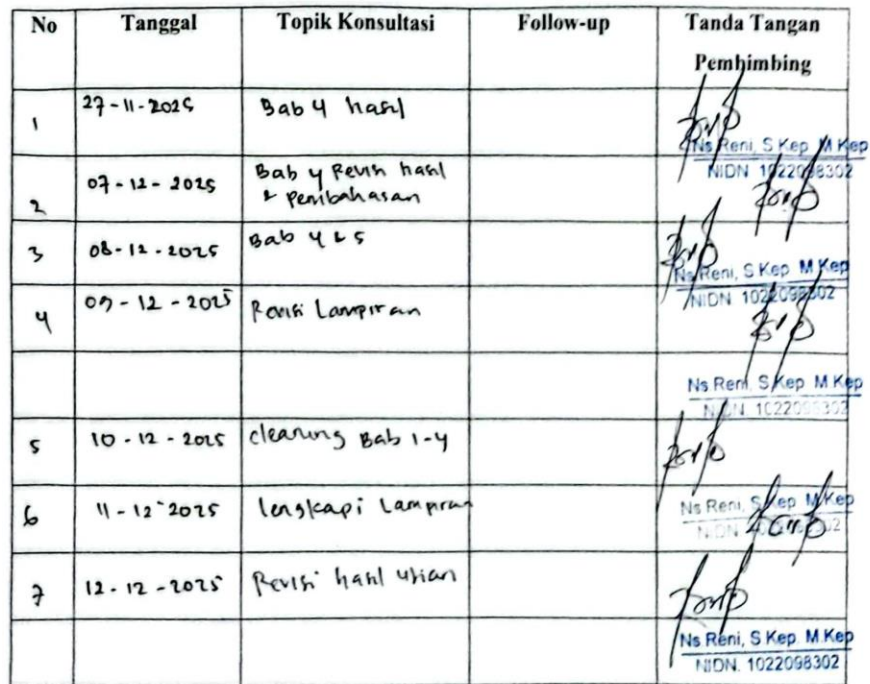 No Tanggal Topik Konsultasi Follow-up Tanda Tangan Pembimbing
1 27-11-2025 Bab 4 hasil
Ns Reni, S Kep M Kep
NIDN 1022098302
2 07-12-2025 Bab 4 Revisi hasil
& Pembahasan
3 08-12-2025 Bab 4 & 5
Ns Reni, S Kep M Kep
NIDN 1022098302
4 09-12-2025 Revisi Lampiran
Ns Reni, S Kep M Kep
NIDN 1022098302
5 10-12-2025 clearing Bab 1-4
6 11-12-2025 lengkapi Lampiran
Ns Reni, S Kep M Kep
NIDN 1022098302
7 12-12-2025 Revisi hasil ujian
Ns Reni, S Kep M Kep
NIDN. 1022098302